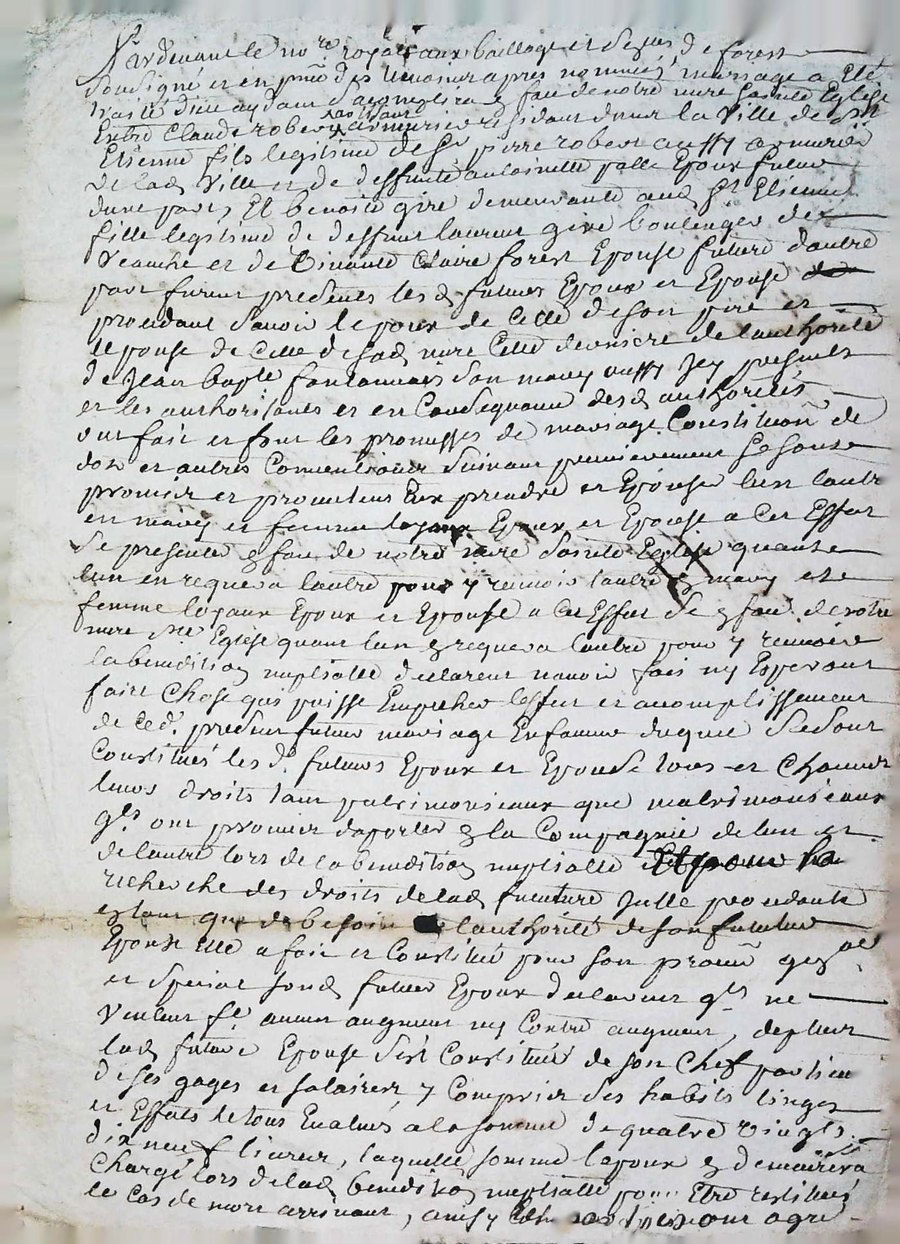 Pardevant le no.re royal aux baillage et de forest
Sousigné et en pnce des temoins apres nommés, mariage a eté
traité dieu aydant s'acomplira en face de notre mere Sainte Eglise
Entre Claude robert armurier residant dans la Ville de St
Etienne fils legitime de Sr pierre robert aussy armurier
de lad. Ville et de deffunte antoinette palle Epoux futur
dune part, Et benoite giré demeurante aud. St Etienne
fille legitime de deffunt laurent giré boulenger de
Veauche et de Claire forest Epouse future dautre
part furent presents lesd. futurs Epoux et Epouse
procedant savoir lepoux de Celle de son pere et
lepouse de Celle de sad. mere Cette derniere de lauthorité
de Jean bapte fontannais son mary aussy Icy presents
et les authorisants et en Consequance desd. authorités
ont fait et font les promesses de mariage Constitution de
dot et autres Conventions Suivant premierement Se sont
promis et promettent Eux prendre et Epouser lun lautre
en mary et femme loyaux Epoux et Epouse a Cet Effet
Se presenter en face de notre mere Sainte Eglise quand
lun en requera lautre pour y recevoir lautre en mary et
femme loyaux Epoux et Epouse a Cet Effet Se en face de notre
mere Ste Eglise quant lun en requera lautre pour y recevoir
la benediction nuptialle declarent navoir fait ny Esperant
faire Chose qui puisse Empecher leffet et acomplissement
de Ced. present futur mariage En faveur duquel Se sont
Constitués les d. futurs Epoux et Epouse tous et Chacuns
leurs droits tant patrimoniaux que matrimoniaux
qls ont promis daporter en la Compagnie de lun et
de lautre lors de la benediction nuptialle Et pour la
recherche des droits de lad. future Icelle procedante
en tant que de besoin de lauthorité de son futur
Epoux Elle a fait et Constitué pour son procur gnal
et special sond. futur Epoux declarent qls ne
Veulent fe aucun augment ny Contre augment, de plus
lad. future Epouse sest Constitué de son Chef
de ses gages et salaires y Compris ses habits linges
et Effets le tout Evalués a la somme de quatre vingts
dix neuf livres, laquelle somme lepoux en demeurera
Chargé lors de lad. benediction nuptialle pour Etre restitués
le Cas de mort arrivant, ainsy